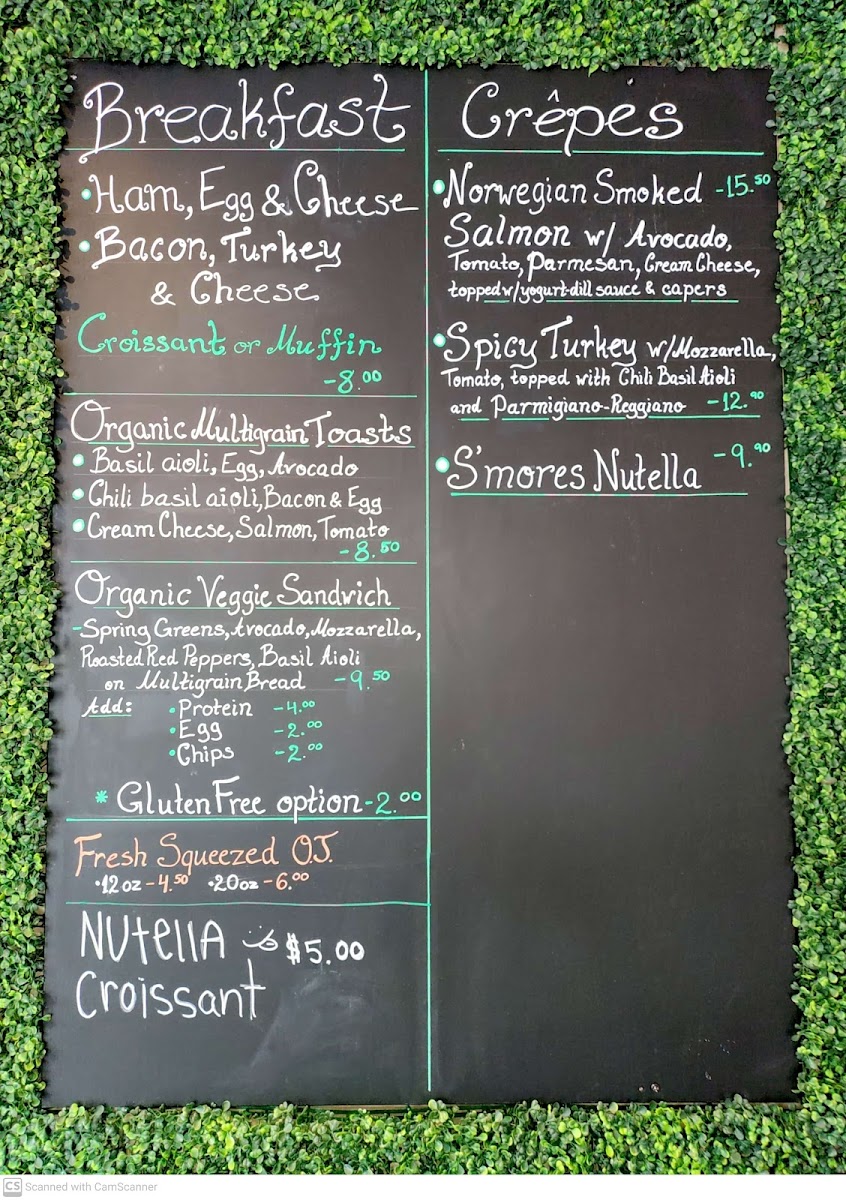 Breakfast
•Ham, Egg & Cheese
•Bacon, Turkey
& Cheese
Croissant or Muffin
-8.00
Organic Multigrain Toasts
•Basil aioli, Egg, Avocado
•Chili basil aioli, Bacon & Egg
•Cream Cheese, Salmon, Tomato
-8.50
Organic Veggie Sandwich
-Spring Greens, Avocado, Mozzarella,
Roasted Red Peppers, Basil Aioli
on Multigrain Bread -9.50
Add: •Protein -4.00
•Egg -2.00
•Chips -2.00
* Gluten Free option -2.00
Fresh Squeezed O.J.
•12oz -4.50 •20oz -6.00
NUtellA $5.00
Croissant
Crêpes
•Norwegian Smoked -15.50
Salmon w/ Avocado,
Tomato, Parmesan, Cream Cheese,
topped w/yogurt-dill sauce & capers
•Spicy Turkey w/Mozzarella,
Tomato, topped with Chili Basil Aioli
and Parmigiano-Reggiano -12.90
•S'mores Nutella -9.90
CS Scanned with CamScanner